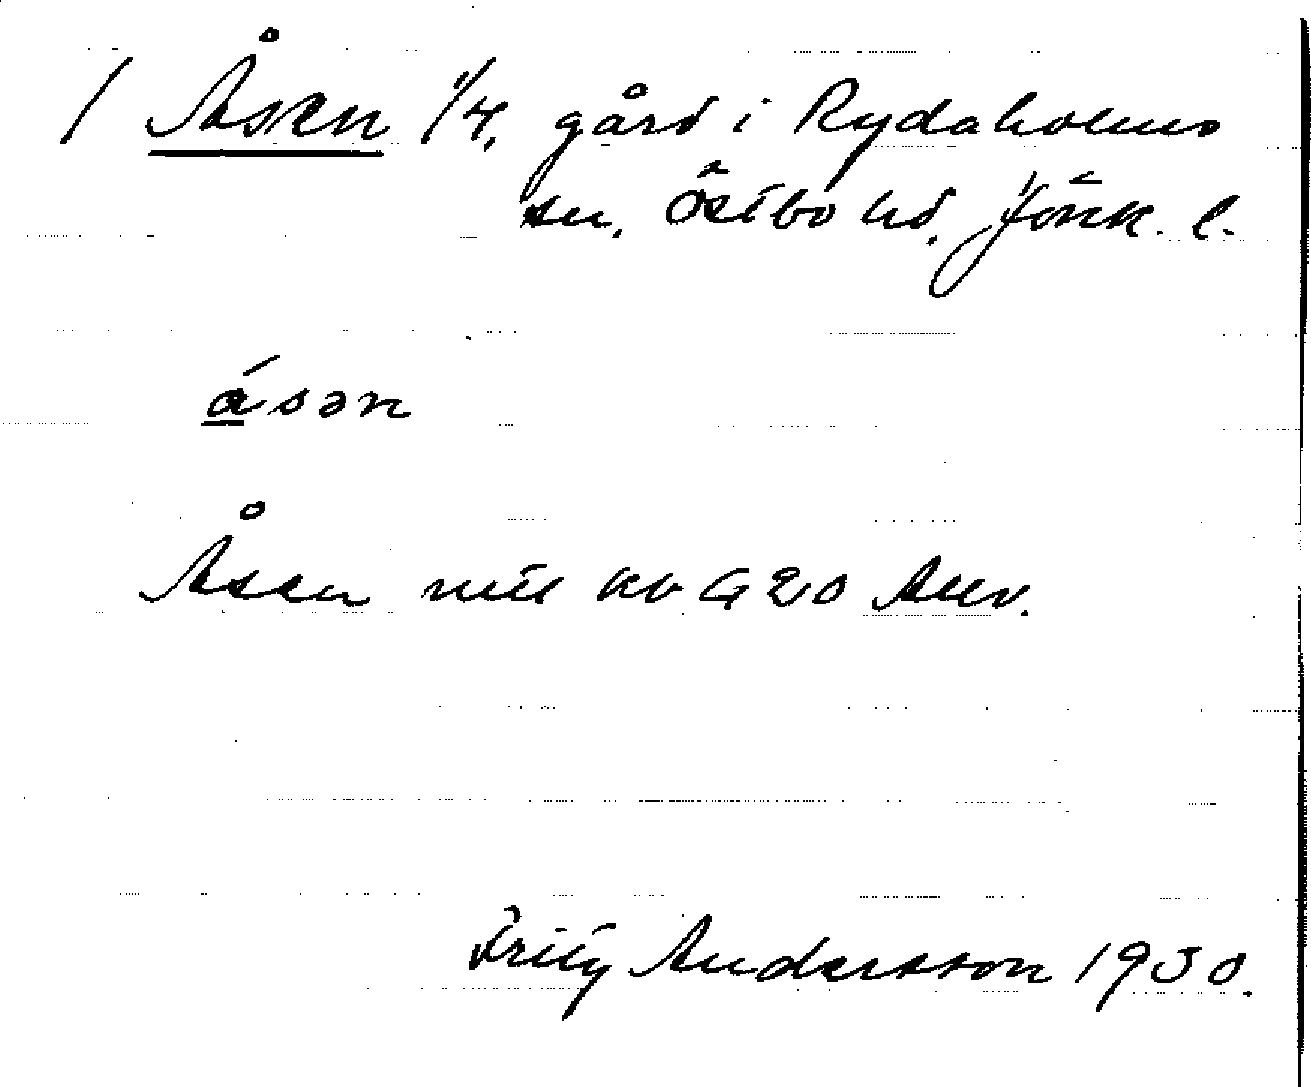 / Åsen 1/4, gård i Rydaholms
sn, Östbo hd, Jönk. l.
ása̱n
Åsen mtl kv G 20
Fritz Andersson 1930.